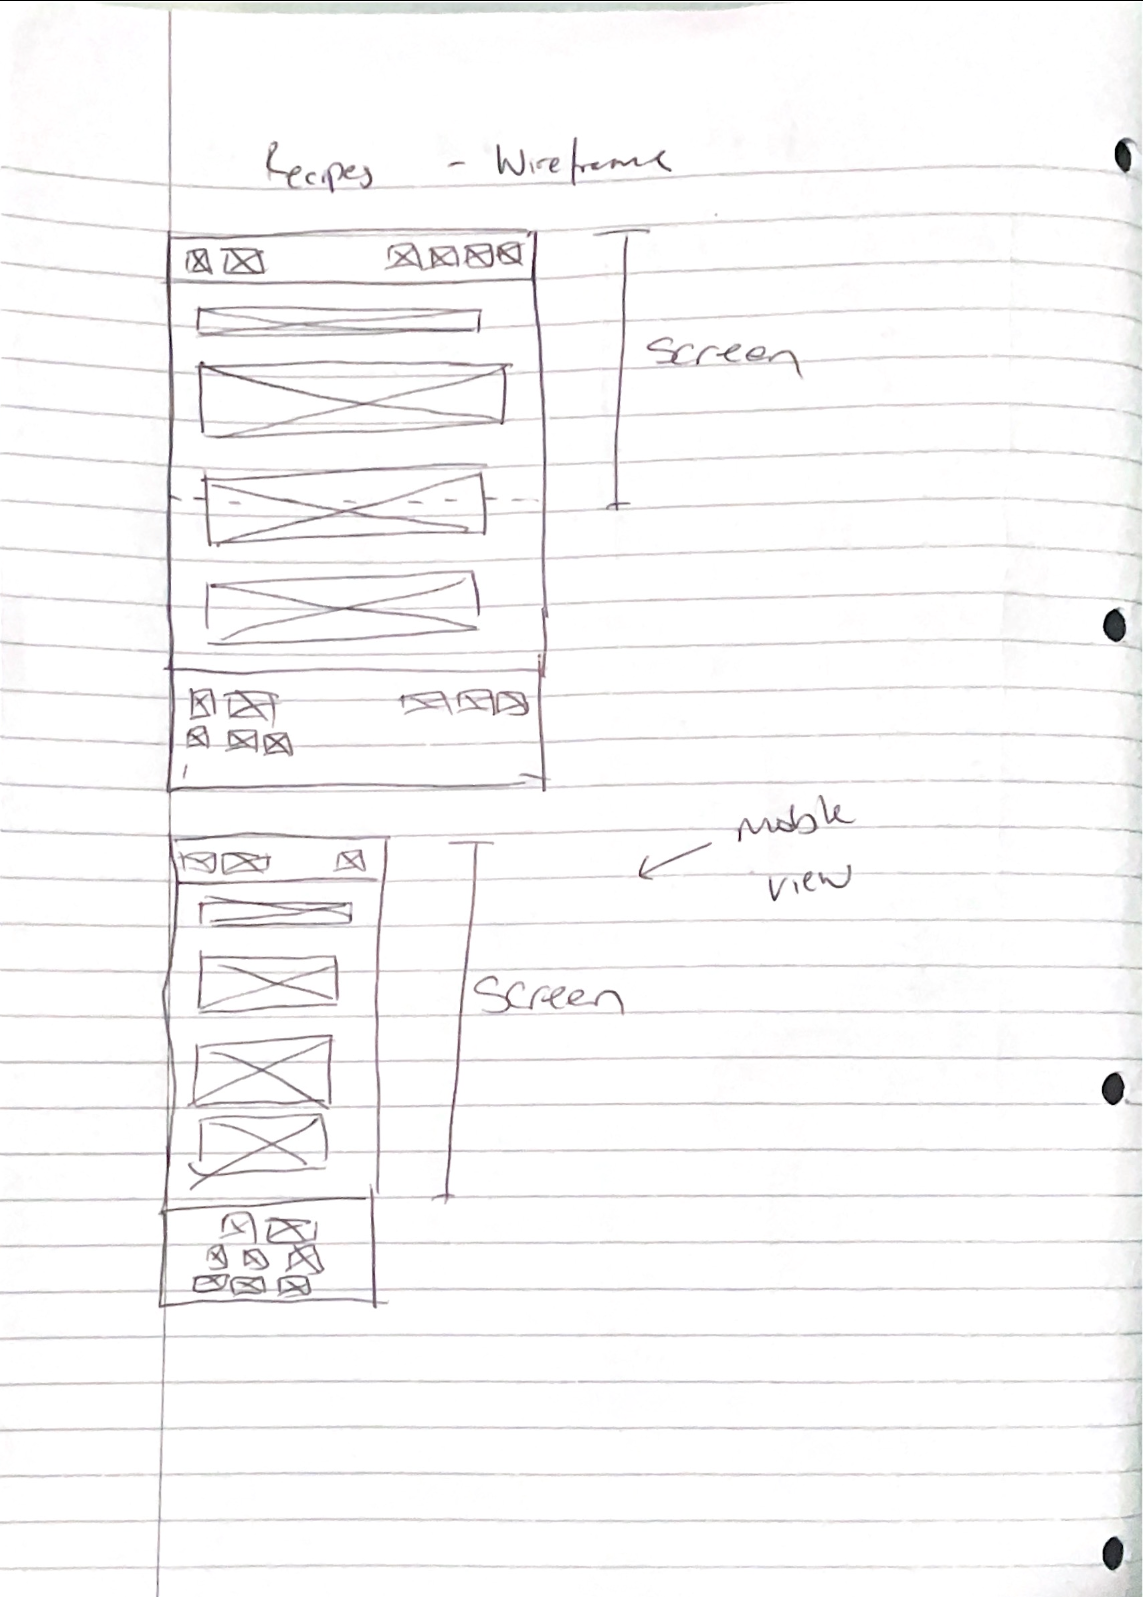 Recipes - Wireframe
Screen
mobile
view
Screen